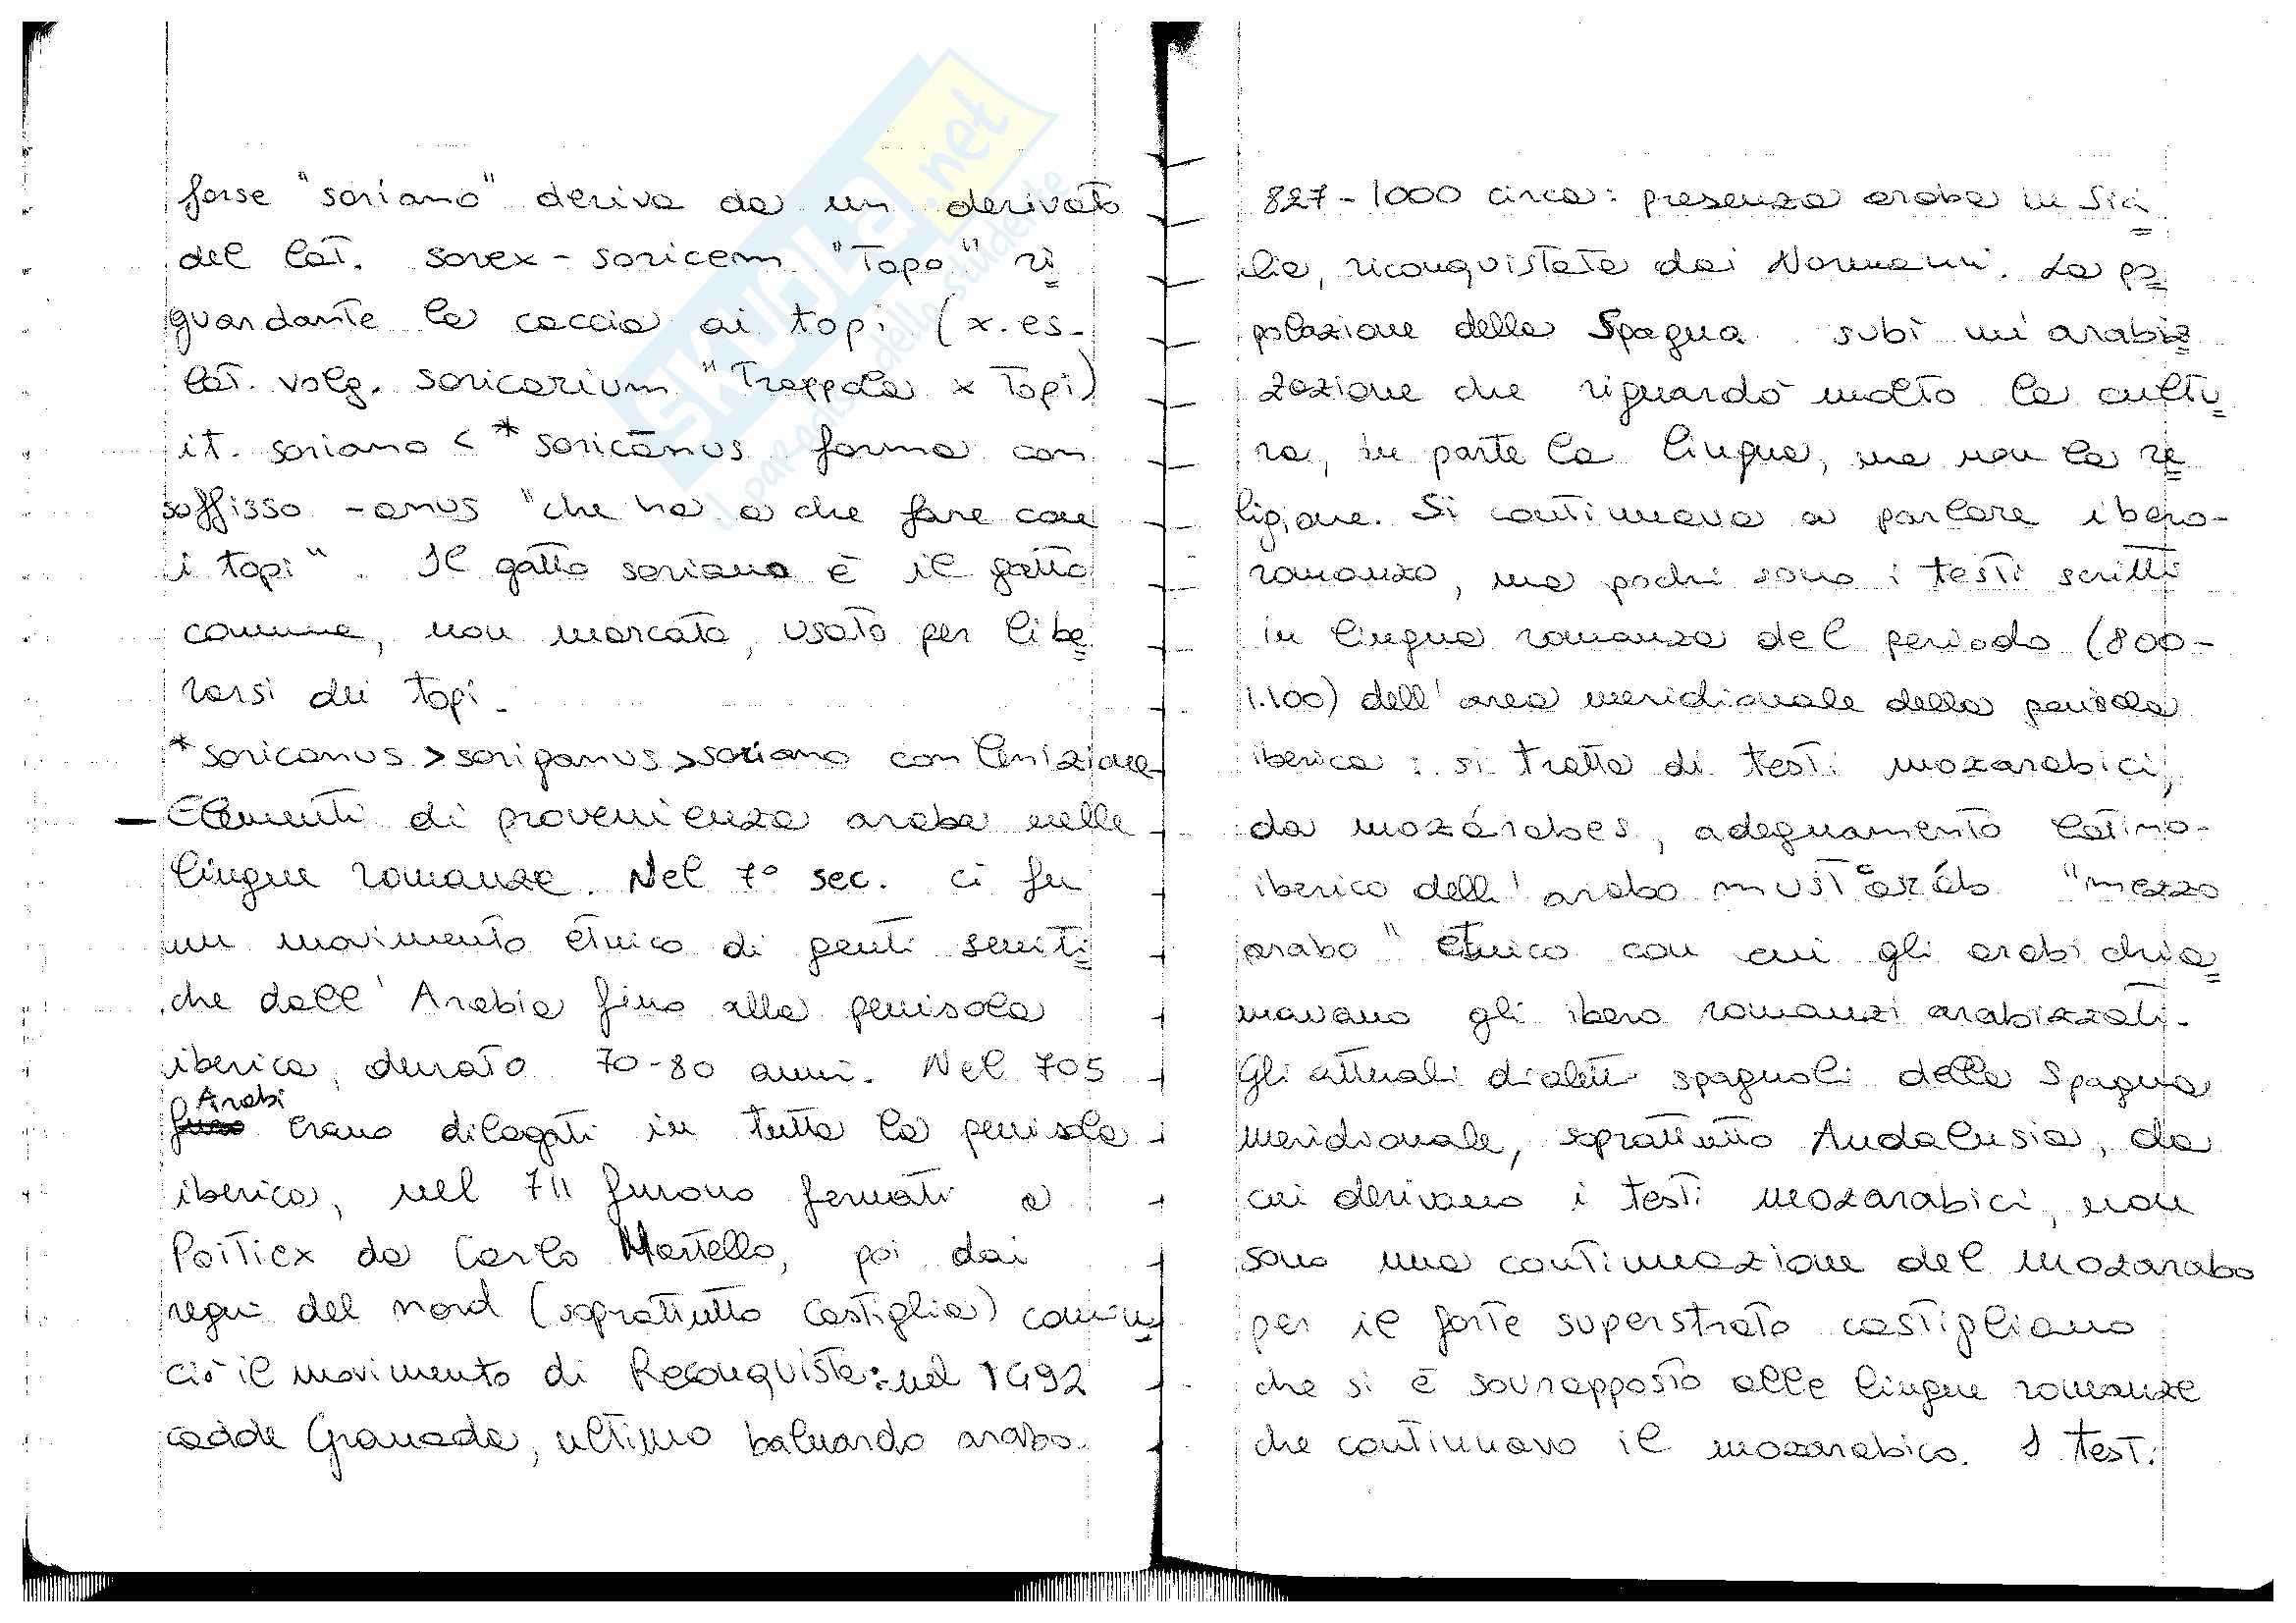 forse "soriano" deriva da un derivato
del lat. sorex-soricem "Topo" ri
guardante la caccia ai topi (x.es-
lat. volg. soricarium "Trappola x Topi)
it. soriano < *soricānus forma con
suffisso -anus "che ha a che fare con
i topi". Il gatto soriano è il gatto
comune, non marcato, usato per libe
rarsi dei topi.
*soricanus > soriganus > soriano con lenizione
– Elementi di provenienza araba nelle
lingue romanze. Nel 7° sec. ci fu
un movimento etnico di genti semiti
che dall'Arabia fino alla penisola
iberica, durato 70-80 anni. Nel 705
Arabi
erano dilagati in tutta la penisola
iberica, nel 711 furono fermati a
Poitiex da Carlo Martello, poi dai
regni del nord (soprattutto Castiglia) comin
ciò il movimento di Reconquista: nel 1492
cadde Granada, ultimo baluardo arabo.
827-1000 circa: presenza araba in Sici
lia, riconquistata dai Normanni. La po
polazione della Spagna subì un'arabiz
zazione che riguardò molto la cultu
ra, in parte la lingua, ma non la re
ligione. Si continuava a parlare ibero-
romanzo, ma pochi sono i testi scritti
in lingua romanza del periodo (800-
1.100) dell'area meridionale della penisola
iberica: si tratta di testi mozarabici,
da mozárabes, adeguamento latino-
iberico dell'arabo "mezzo
arabo" etnico con cui gli arabi chia
mavano gli ibero romanzi arabizzati.
Gli attuali dialetti spagnoli della Spagna
meridionale, soprattutto Andalusia, da
cui derivano i testi mozarabici, non
sono una continuazione del mozarabo
per il forte superstrato castigliano
che si è sovrapposto alle lingue romanze
che continuavo il mozarabico. I testi
SKUOLA.net
il paradiso dello studente